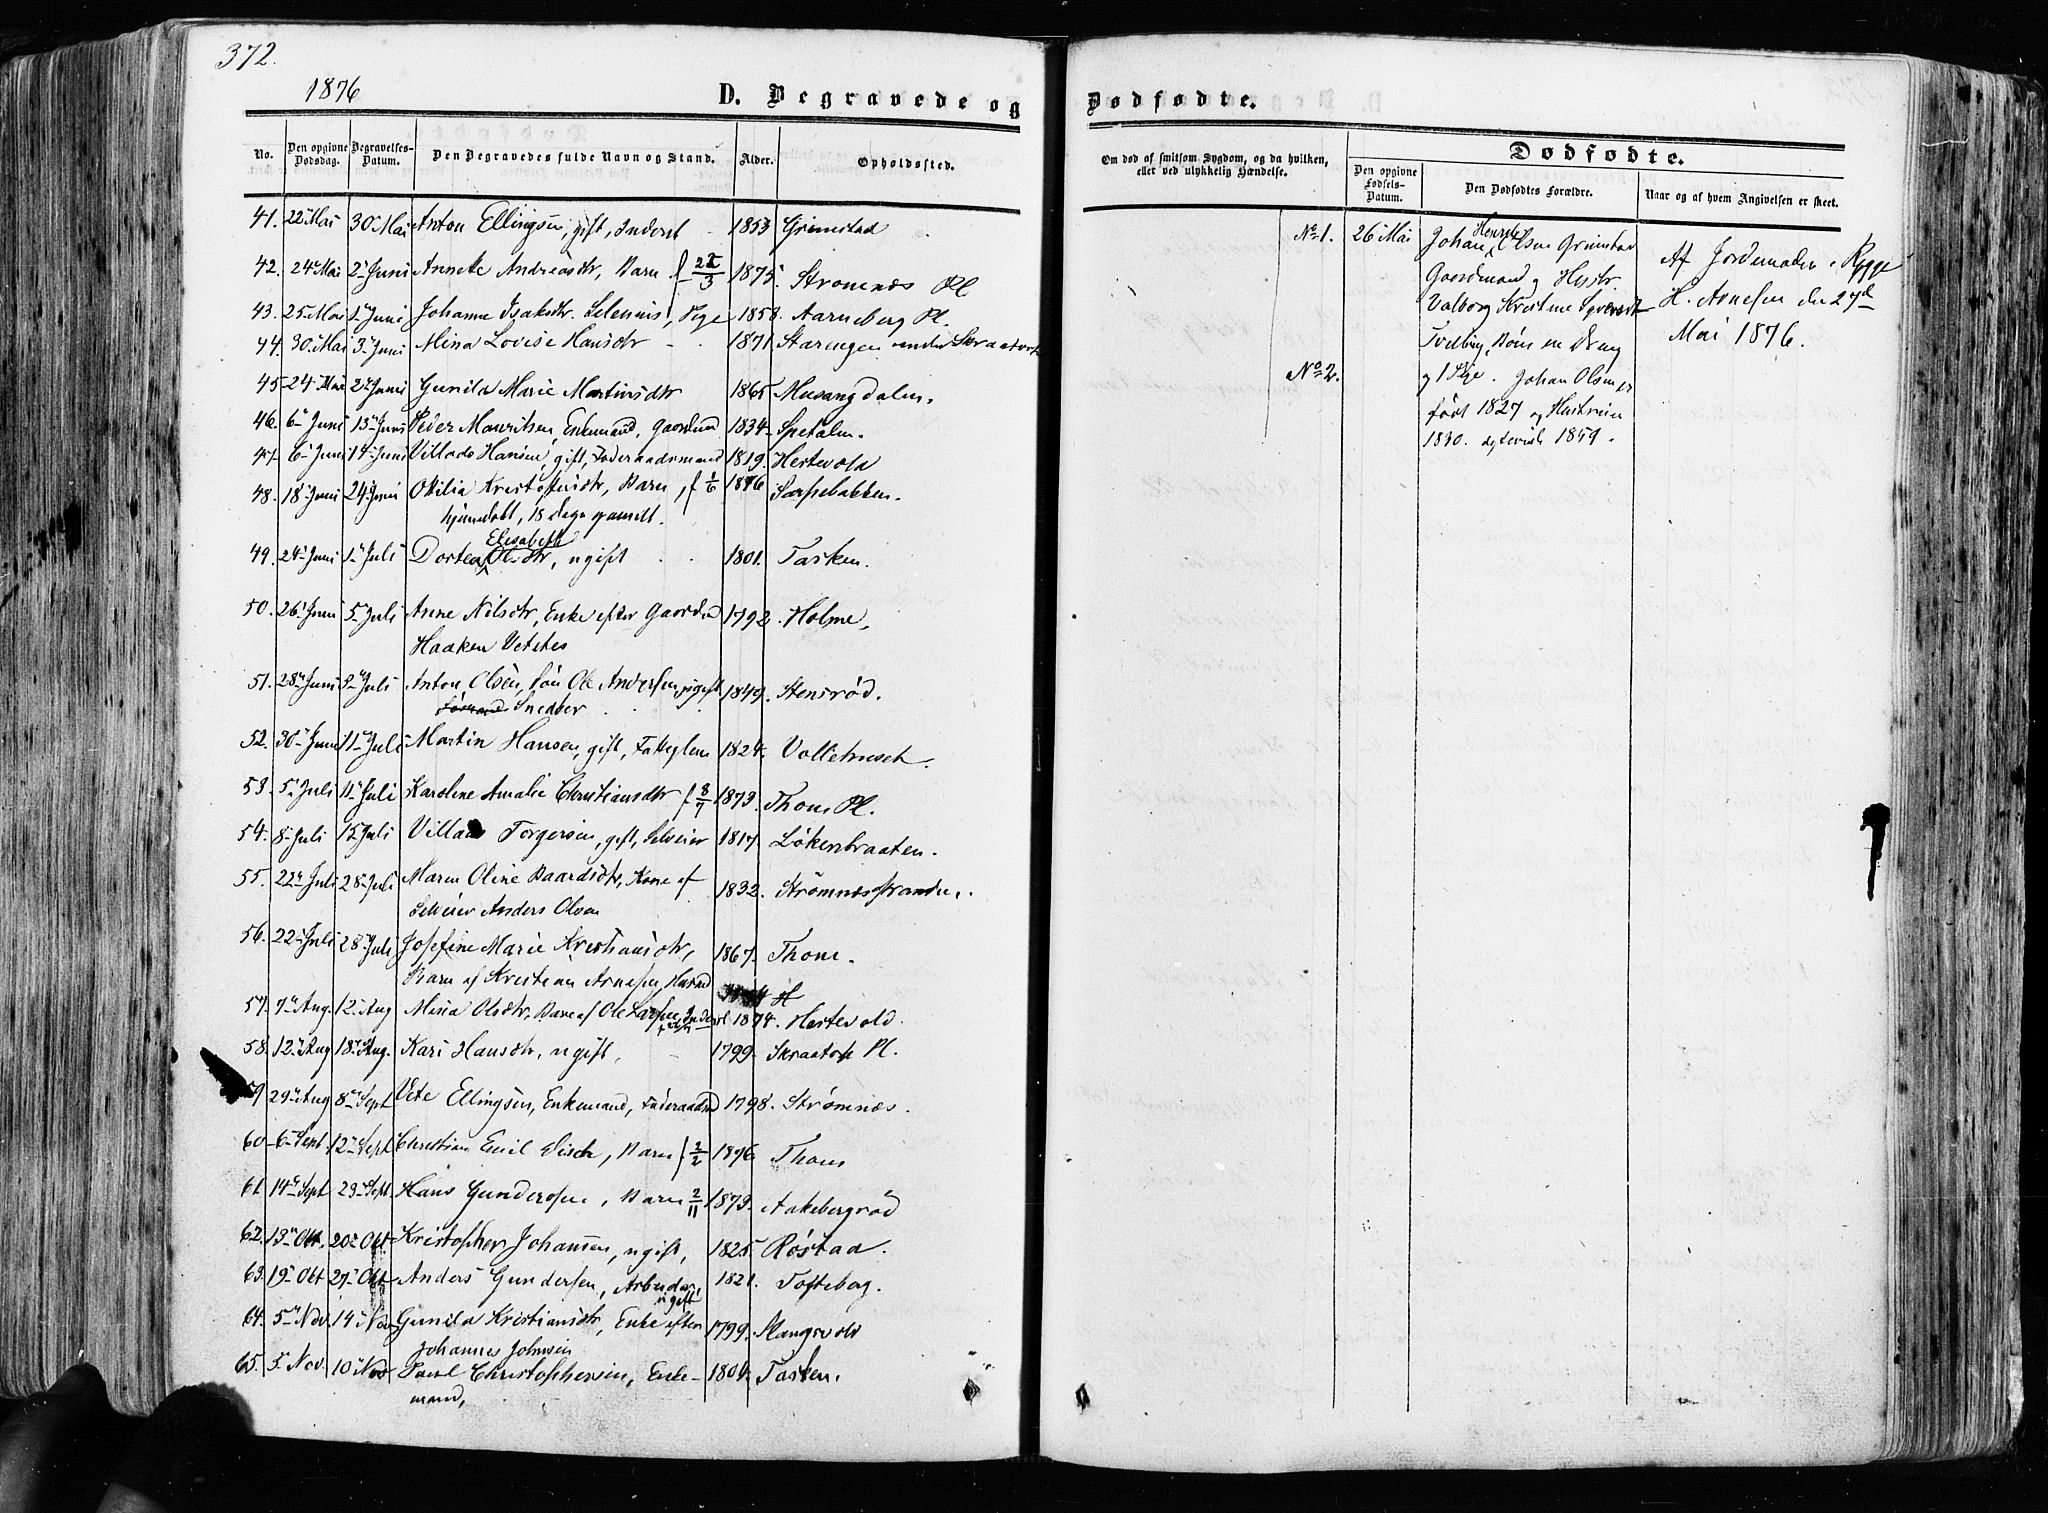 372.
1876
D. Begravede og Dødfødte.
No. Den opgivne Dødsdag. Begravelses-Datum. Den Begravedes fulde Navn og Stand. Alder. Opholdssted.
41. 22 Mai 30 Mai Anton Ellingsen, gift, Inderst 1853 Grimstad
42. 24 Mai 2 Juni Annette Andreasdtr, Barn f 22/3 1875. Stromnæs Pl
43. 25 Mai 1 Juni Johanne Isaksdtr. Selenius, Pige 1858. Aarneberg Pl.
44. 30 Mai 3 Juni Mina Lovise Hansdtr 1871 Starengen under Skraatorp
45 24 Mai 2 Juni Gunild Marie Martinsdtr 1865 Musangdalen.
46. 6 Juni 13 Juni Peder Mauritsen Enkemand, Gaardmd 1834 Spetalen.
47 6 Juni 14 Juni Villads Hansen, gift, Foderaadsmand 1819. Hestevold
48. 18 Juni 24 Juni Otilia Kristofersdtr, Barn, f 1/6 1876 Sarpebakken.
hjemmedøbt, 18 Dage gammelt.
Elisabeth
49. 24 Juni 1 Juli Dortea Olsdtr, ugift 1801. Tasken.
50. 26 Juni 5 Juli Anne Nilsdtr, Enke efter Gaardmd 1792. Holme,
Haaken Vetetes
51. 28 Juni 9 Juli Anton Olsen, Søn Ole Andersen, ugift 1849. Stensrød.
Snedker
52. 30 Juni 11 Juli Martin Hansen, gift, Fattiglem 1824. Volletrusch.
53. 5 Juli 11 Juli Karoline Amalie Christiansdtr f 8/7 1873. Thom Pl.
54. 8 Juli 15 Juli Villads Torgersen, gift, Selveier 1817. Løkenbraaten.
55. 22 Juli 28 Juli Maren Oline Baardsdtr, Kone af 1832. Strømnæsstranden.
Selveier Anders Olsen
56. 22 Juli 28 Juli Josefine Marie Kristiansdtr, 1867. Thom.
Barn af Kristian Arnesen, Husmd
57. 7 Aug. 12 Aug Mina Olsdtr, Barn af Ole Larsen, Inderst 1874. Hestevold.
58. 12 Aug 18 Aug. Kari Hansdtr, ugift, 1799. Skraatorp Pl.
59 29 Aug 8 Sept Vete Ellingsen, Enkemand, Foderaadsmd 1798. Strømnæs.
60 6 Sept 12 Sept Christian Emil Disch, Barn f 2/2 1876 Thom
61 14 Sept 23 Sept. Hans Gundersen, Barn 2/11 1873. Aakebergrød
62. 13 Okt. 20 Okt Kristopher Johansen, ugift, 1825. Røstad.
63. 19 Okt 27 Okt Anders Gundersen, Arbeider, 1821. Tofteberg.
ugift
64. 5 Nov. 14 Nov Gunild Kristiansdtr, Enke efter 1799. Slangsvold
Johannes Johnsen
65. 5 Nov. 10 Nov Poul Christophersen, Enke- 1804. Tasken.
mand,
Om død af smitsom Sygdom, og da hvilken,
eller ved ulykkelig Hændelse.
Dødfødte.
Den opgivne Fødsels-Datum. Den Dødfødtes Forældre. Naar og af hvem Angivelsen er skeet.
No 1. 26 Mai
No 2.
Henrik
Johan Olsen Grimstad
Gaardmand og Hustr.
Valborg Kristine Syversdtr
Tvilling, Børn en Dreng
og 1 Pige. Johan Olsen er
født 1827 og Hustruen
1830. egteviet 1859.
Af Jordemoder i Rygge
H. Arnesen den 27d
Mai 1876.